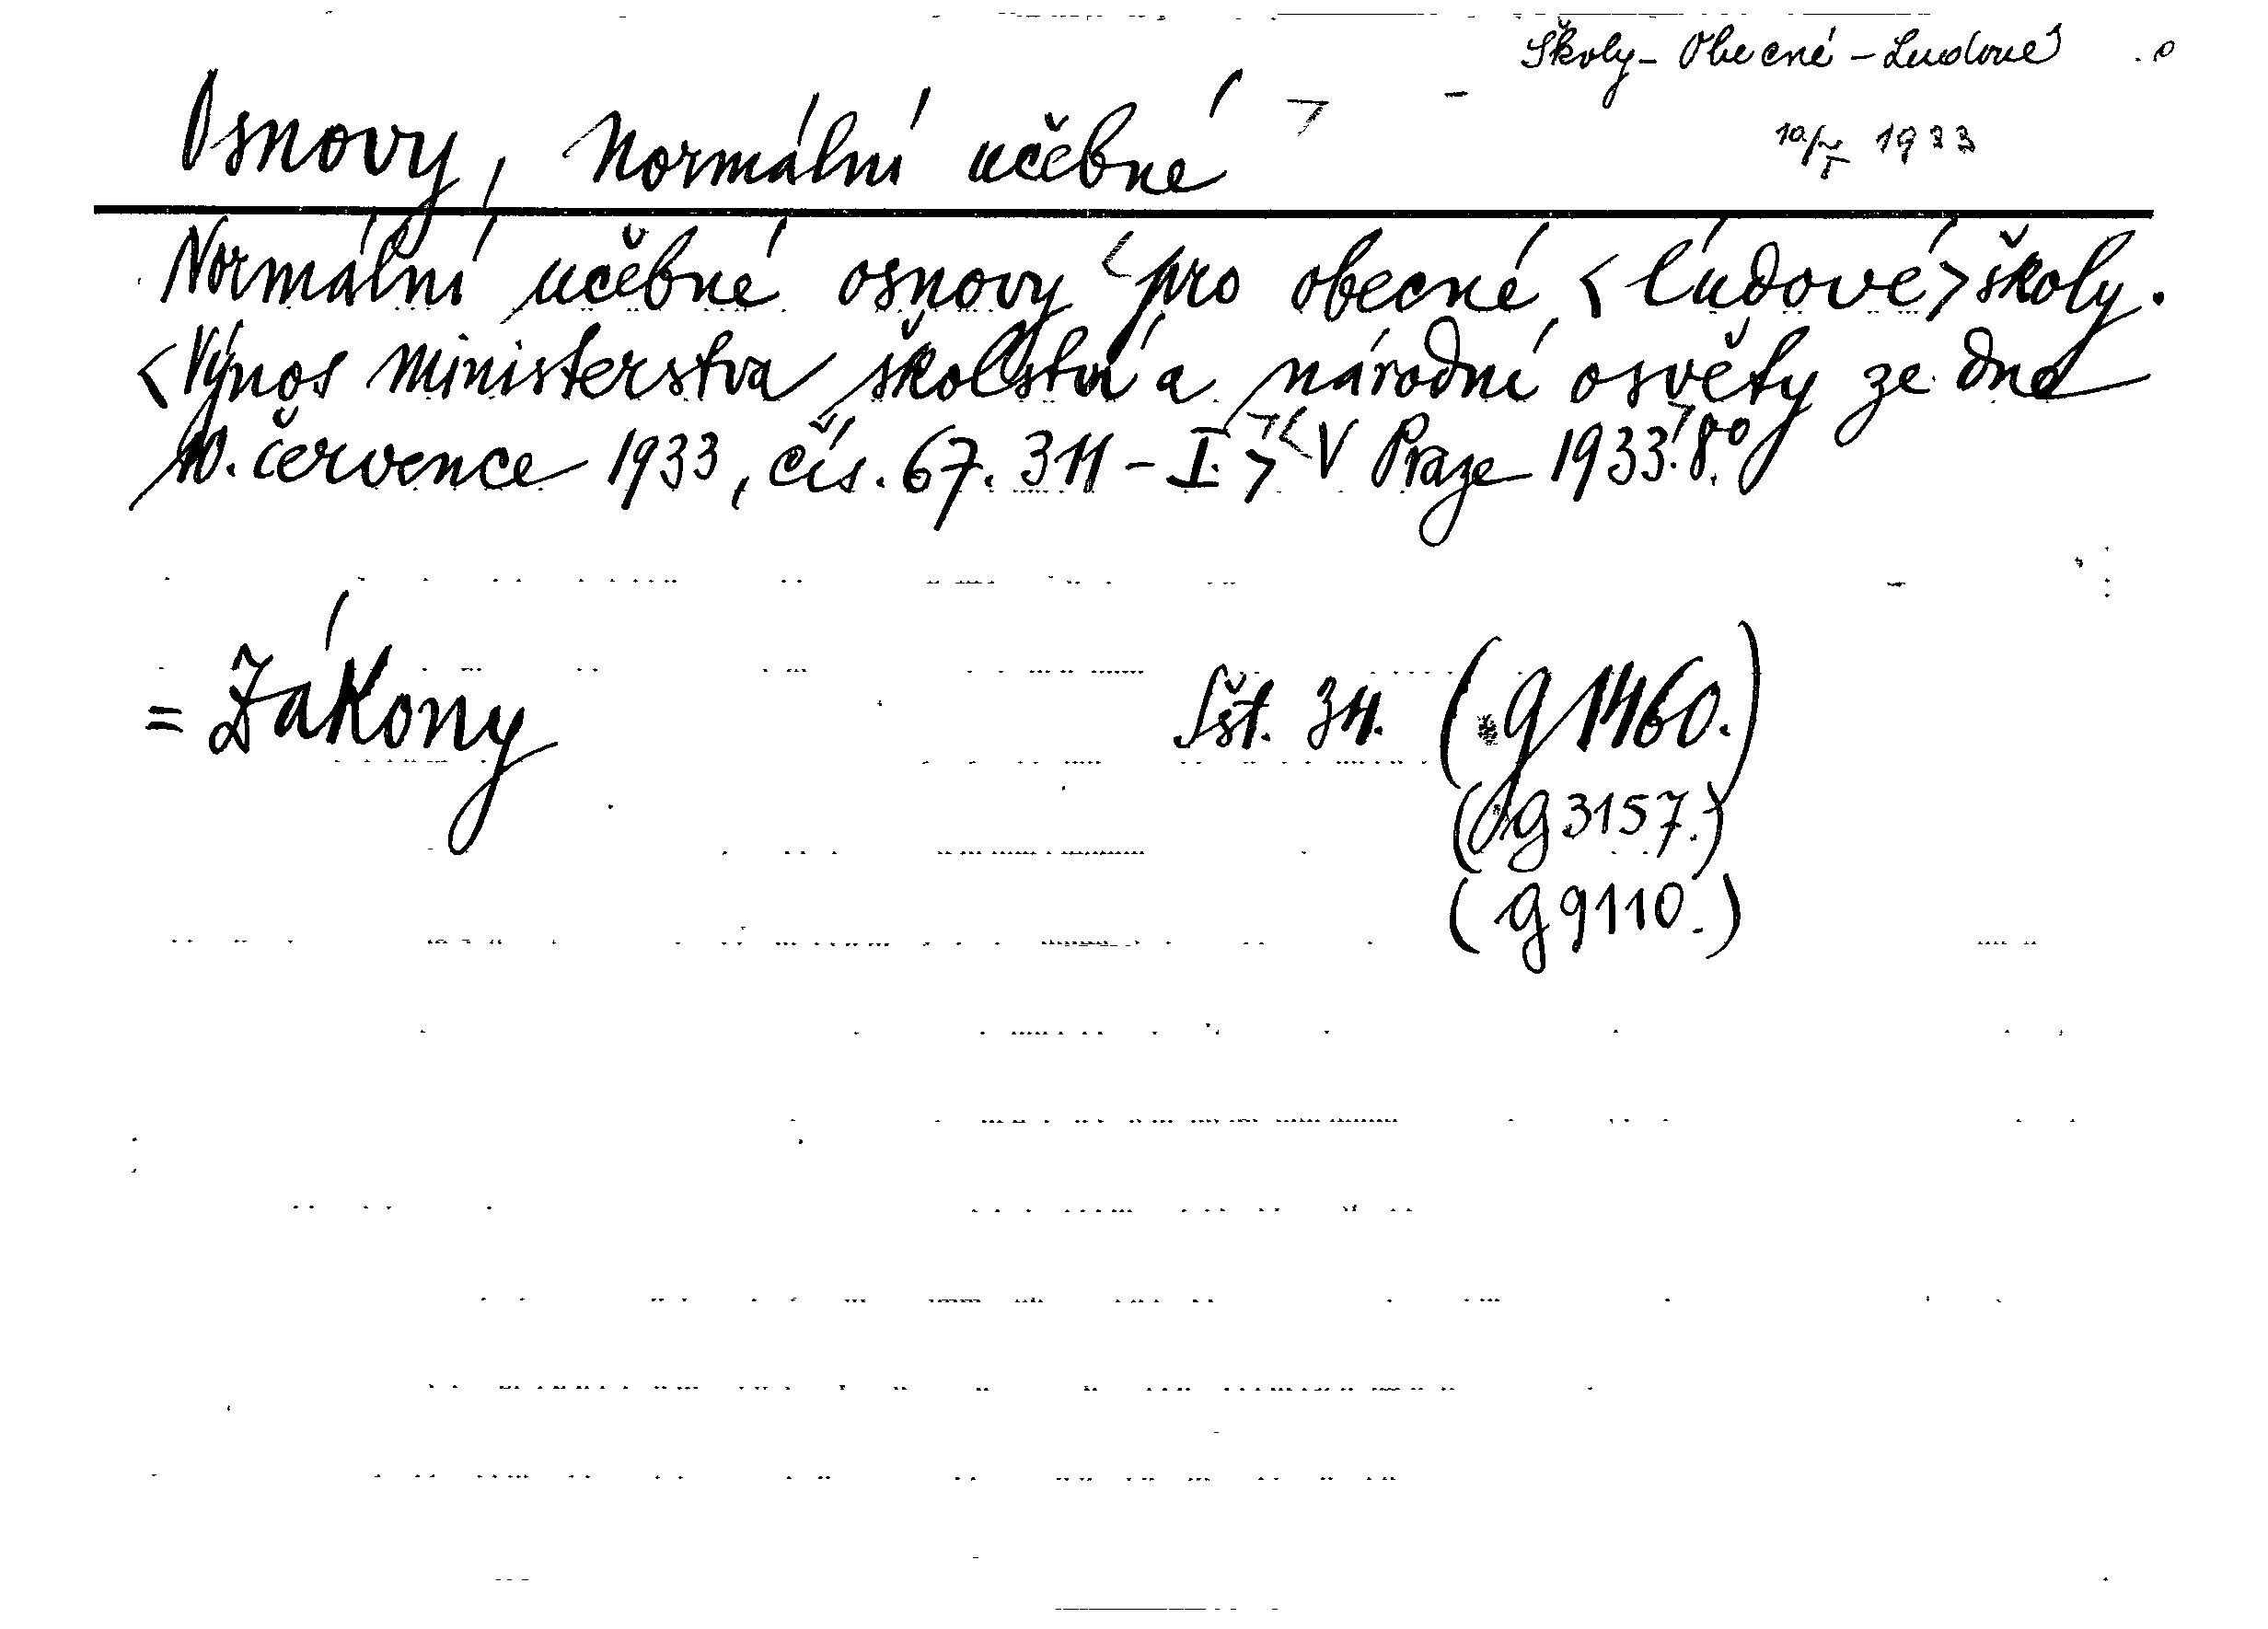 Školy - Obecné - Ludové
Osnovy, normální učebné
10/7 1933
Normální učebné osnovy pro obecné <ľudové> školy.
<Výnos ministerstva školství a národní osvěty ze dne
10. července 1933, čís. 67.311 - I.> V Praze 1933. 8.º
= Zákony
Sšt. 34. (g 1460.)
(g 3157.)
(g 9110.)